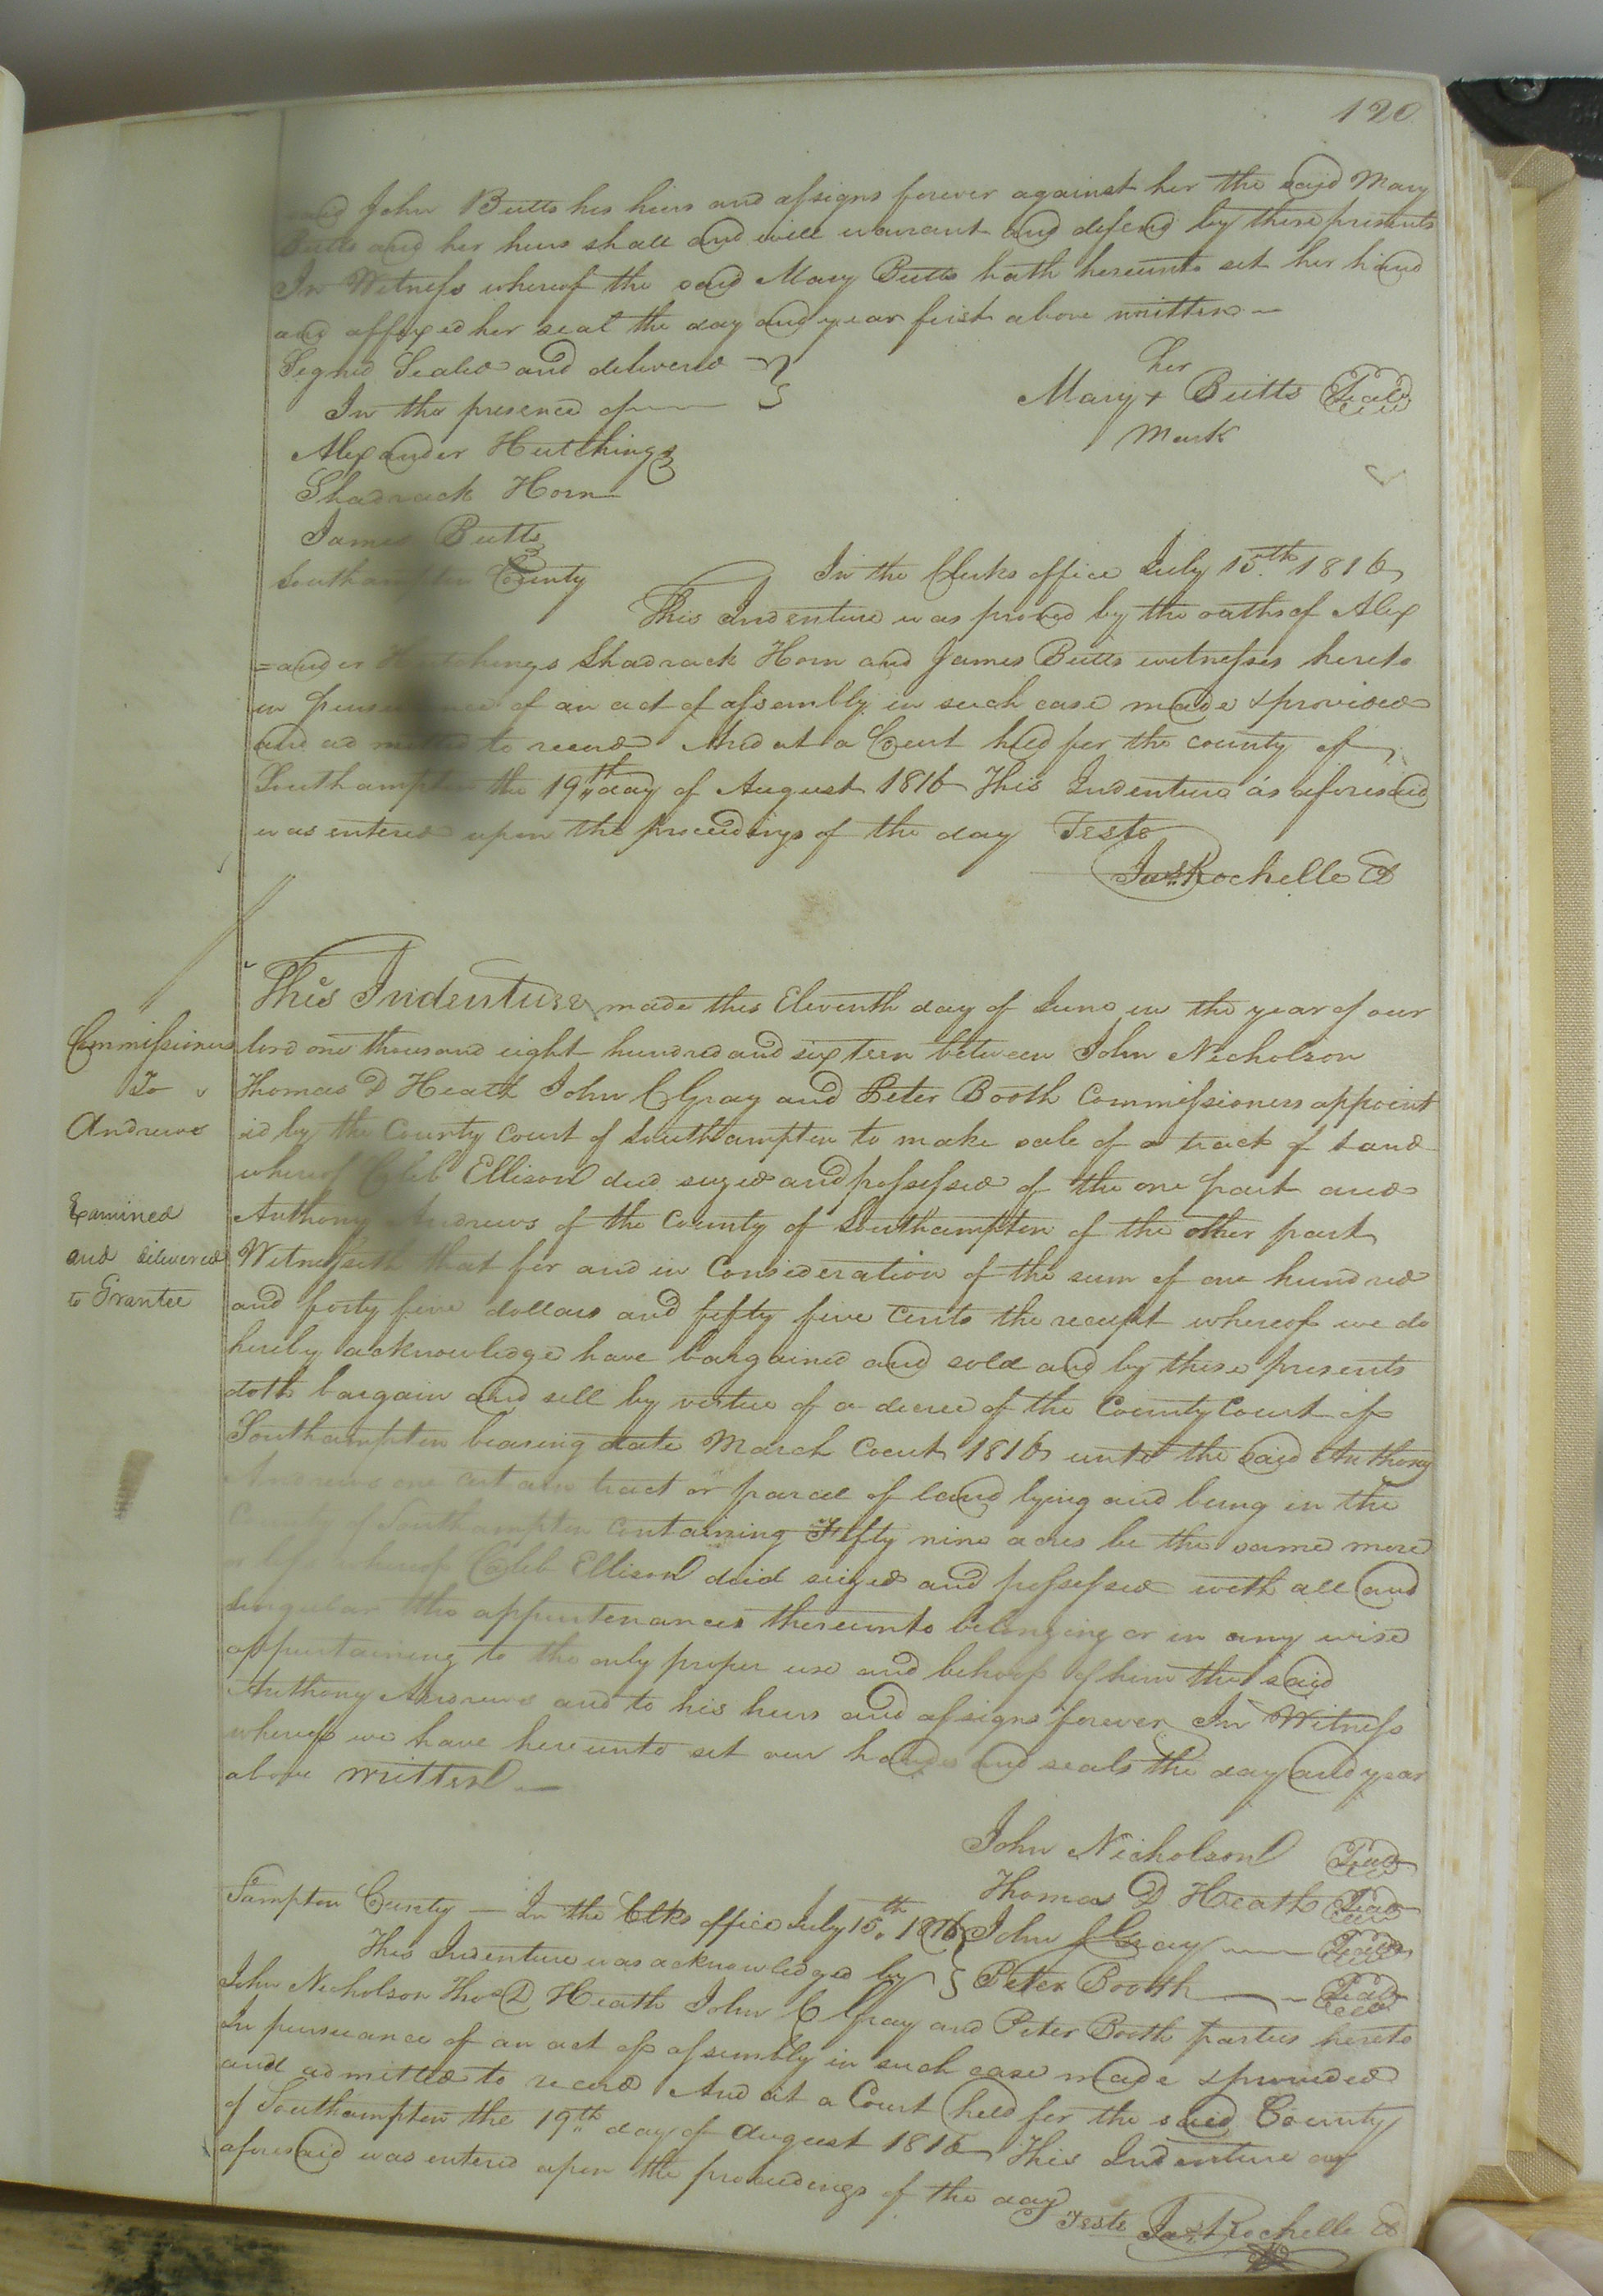 120
said John Butts his heirs and assigns forever against her the said Mary
Butts and her heirs shall and will warrant and defend by these presents
In Witness whereof the said Mary Butts hath hereunto set her hand
and affixed her seal the day and year first above written —
Signed Sealed and delivered
In the presence of
her
Mary + Butts Seal
mark
Alexander Hutchings
Shadrack Horn
James Butts
Southampton County
In the Clerks office July 15th 1816
This Indenture was proved by the oaths of Alex
=ander Hutchings Shadrack Horn and James Butts witnesses hereto
in pursuance of an act of assembly in such case made & provided
and admitted to record And at a Court held for the county of
Southampton the 19th day of August 1816 This Indenture as aforesaid
was entered upon the proceedings of the day Teste
Jas Rochelle Cl
Commissioners
To
Andrews
Examined
and delivered
to Grantee
This Indenture made this Eleventh day of June in the year of our
lord one thousand eight hundred and sixteen between John Nicholson
Thomas D Heath John C Gray and Peter Booth Commissioners appoint
ed by the County Court of Southampton to make sale of a track of land
whereof Caleb Ellison died seized and possessed of the one part and
Anthony Andrews of the County of Southampton of the other part
Witnesseth that for and in Consideration of the sum of one hundred
and forty five dollars and fifty five Cents the receipt whereof we do
hereby acknowledge have bargained and sold and by these presents
doth bargain and sell by virtue of a decree of the County Court of
Southampton bearing date March Court 1816 unto the said Anthony
Andrews one certain tract or parcel of land lying and being in the
County of Southampton Containing Fifty nine acres be the same more
or less whereof Caleb Ellison died seized and possessed with all and
Singular the appurtenances thereunto belonging or in any wise
appurtaining to the only proper use and behoof of him the said
Anthony Andrews and to his heirs and assigns forever In Witness
whereof we have hereunto set our hands and seals the day and year
above written —
John Nicholson Seal
Thomas D Heath Seal
John C Gray Seal
Peter Booth Seal
S'ampton County — In the Clks office July 15th 1816
This Indenture was acknowledged by
John Nicholson Thos D Heath John C Gray and Peter Booth parties hereto
In pursuance of an act of assembly in such case made & provided
and admitted to record And at a Court held for the said County
of Southampton the 19th day of August 1816 This Indenture as
aforesaid was entered upon the proceedings of the day
Teste Jas Rochelle Cl